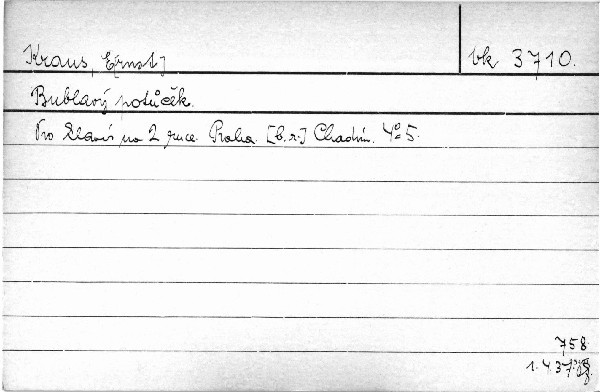 Kraus, E[rnst]
bk 3710.
Bublavý potůček.
Pro klavír na 2 ruce. Praha. [b.r.] Chadim. 4° 5.
758
1.4.37